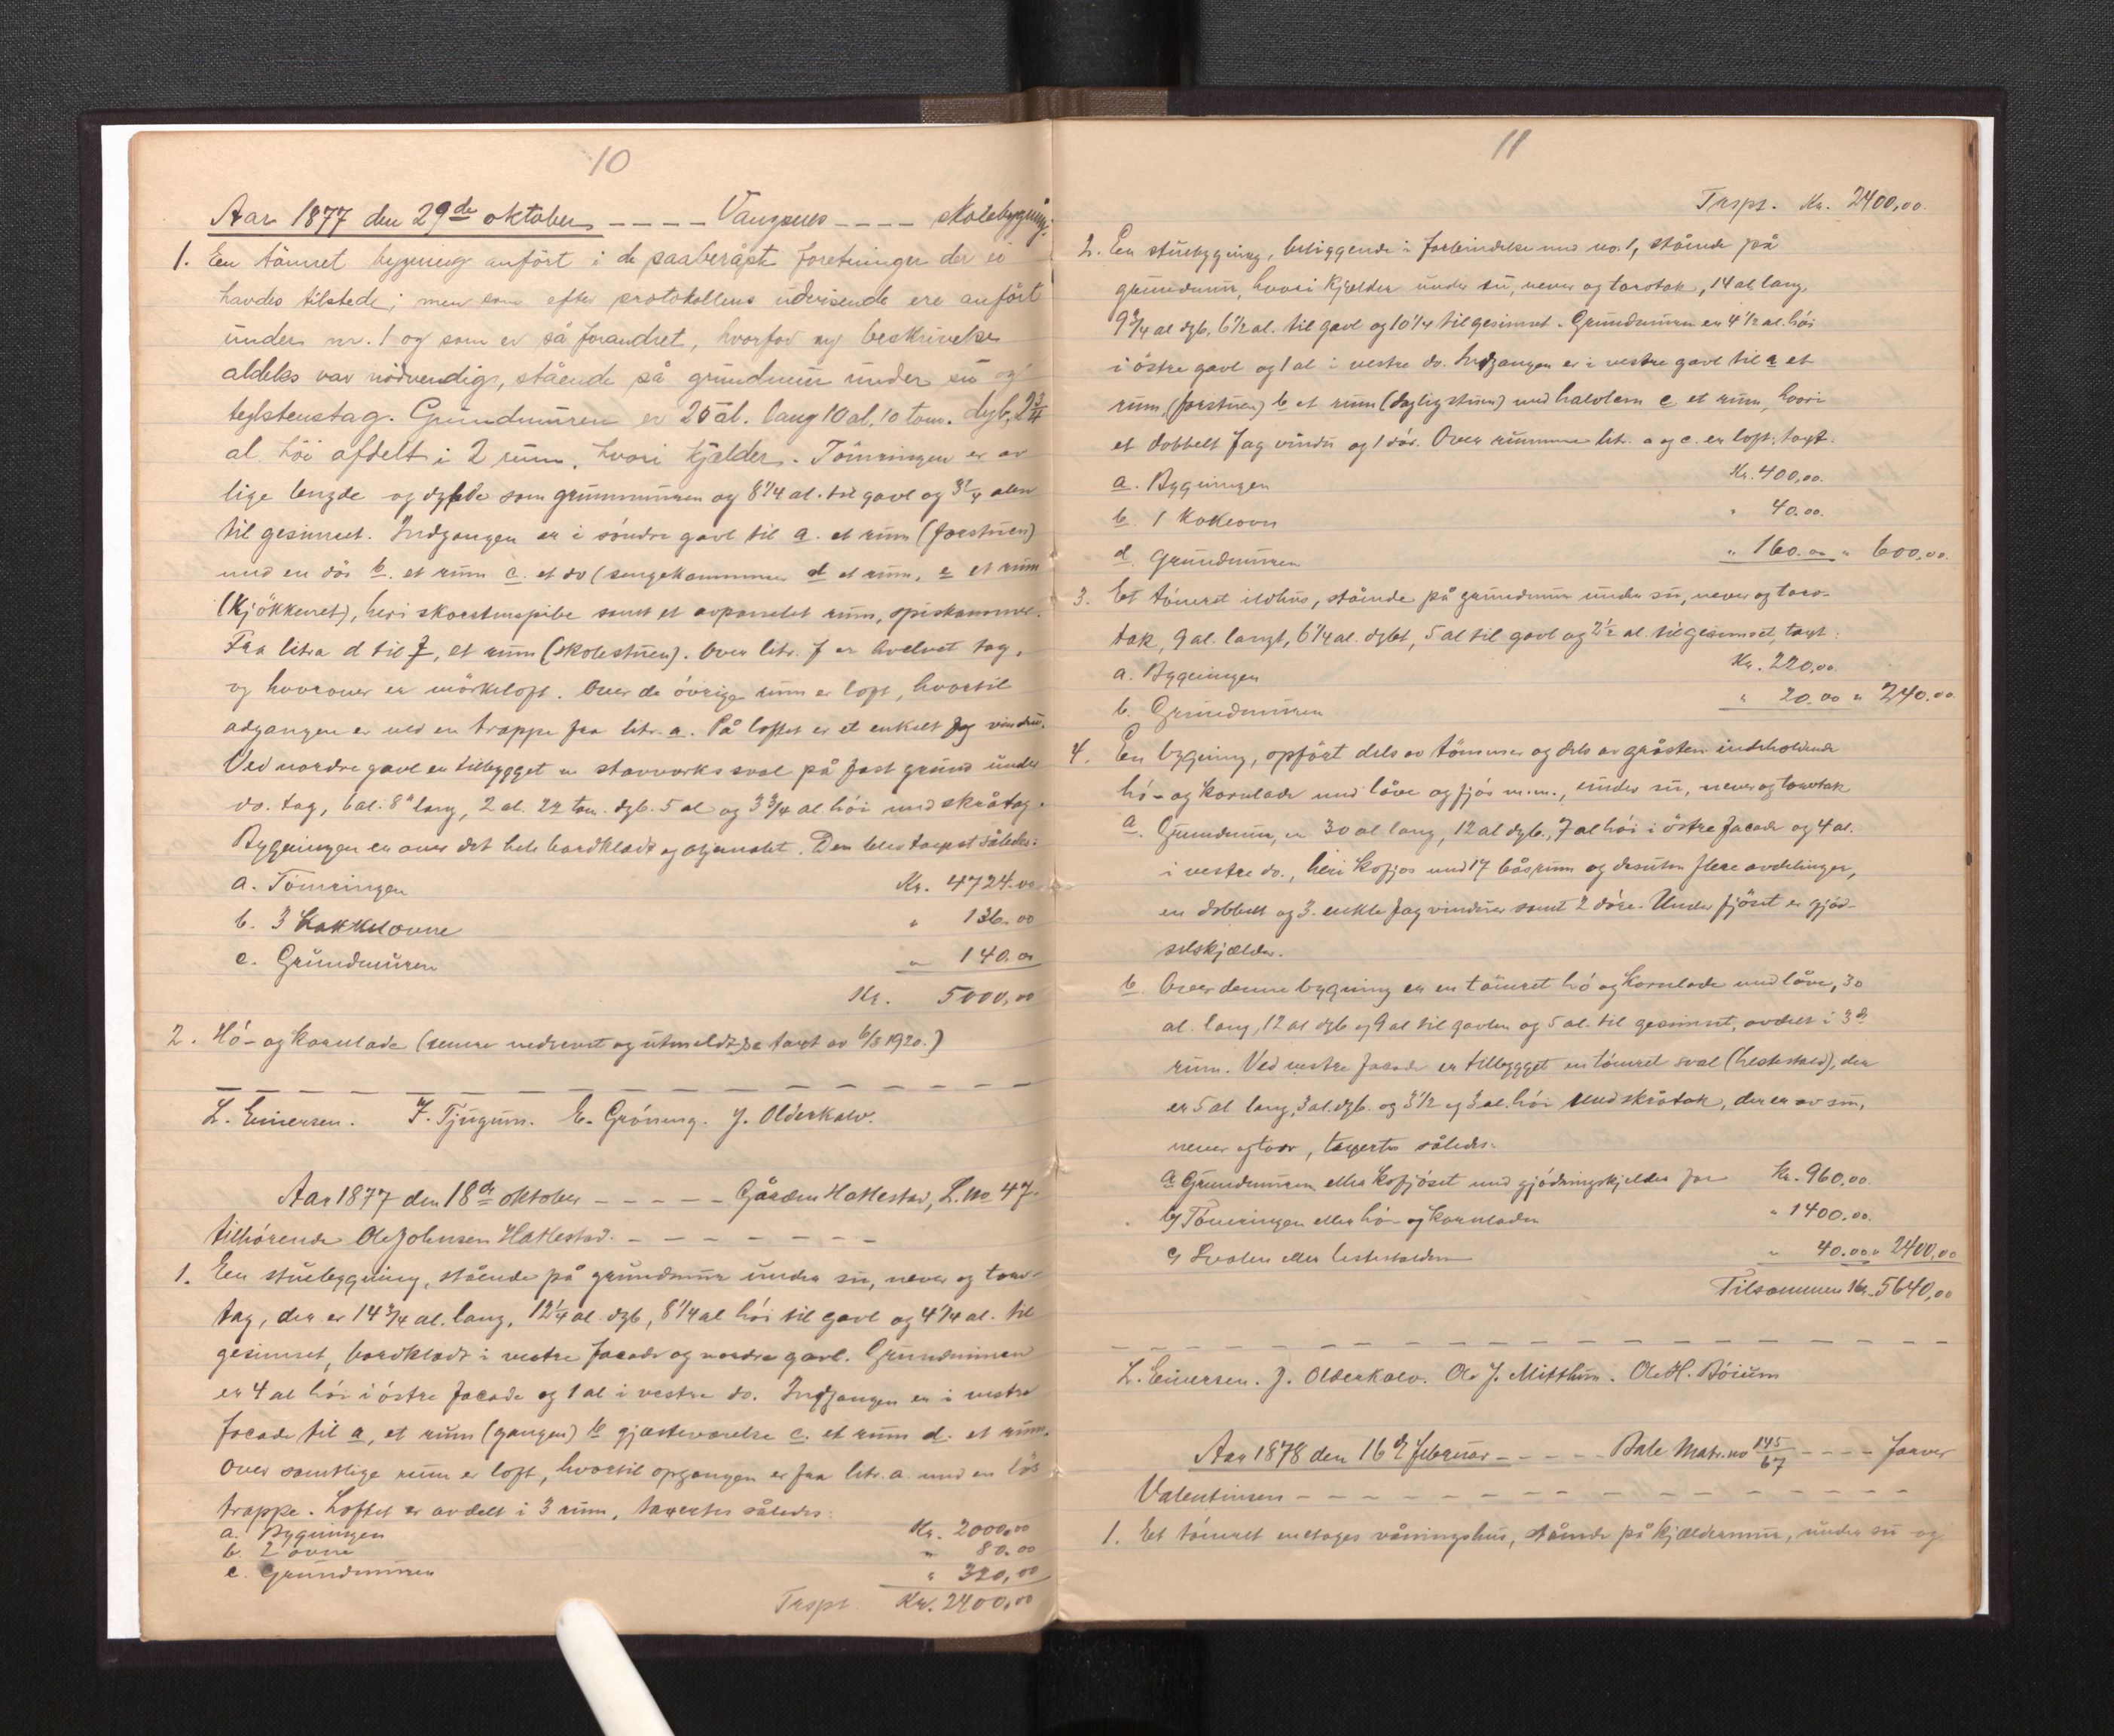 10
Aar 1877 den 29de oktober - - - - Vangsnes - - - - skolebygning.
1. En tömret bygning anfört i de paaberåpte forretninger der ei
havdes tilstede; men som efter protokollens udvisende ere anfört
under nr. 1 og som er så forandret, hvorfor ny beskrivelse
aldeles var nödvendig, stående på grundmur under su og
teglstenstag. Grundmuren er 25 al. lang 10 al. 10 tom. dyb, 2 3/4
al höi afdelt i 2 rum, hvori kjelder. Tömringen er av
lige lengde og dybde som grunnmuren og 8 1/4 al. til gavl og 3 3/4 alen
til gesimset. Indgangen er i söndre gavl til a. et rum (forstuen)
med en dör b. et rum c. et do (sengekammer d et rum, e et rum
(kjökkenet), heri skorstenspibe samt et avpanelet rum, spiskammer.
Fra litra d til f, et rum (skolestuen). Over litr. f er hvelvet tag,
og hvorover er mörkeloft. Over de övrige rum er loft, hvortil
adgangen er ved en trappe fra litr. a. På loftet er et enkelt fag vindu.
Ved nordre gavl er tilbygget en stavverks sval på fast grund under
do. tag, 6 al. 8" lang, 2 al. 22 tom. dyb. 5 al og 3 3/4 al höi med skråtag.
Bygningen er over det hele bordklædt og oljemalet. Den blev taxert således:
a. Tömringen Kr. 4724.00
b. 3 Kakkelovne " 136.00
c. Grundmuren " 140.00
Kr. 5000,00
2. Hö- og kornlade (senere nedrevet og utmeldt, se takst av 6/3 1920.)
L. Einersen. J. Tjugum. E. Gröning. J. Olderkalv.
Aar 1877 den 18de oktober - - - - - Gården Hatlestad, L. no 47.
tilhörende Ole Johnsen Hatlestad. - - - - - - -
1. En stuebygning, stående på grundmur under su, never og torv-
tag, der er 14 3/4 al. lang, 12 1/4 al. dyb, 8 1/4 al höi til gavl og 4 1/4 al. til
gesimset, bordklædt i vestre facade og nordre gavl. Grundmuren
er 4 al höi i östre facade og 1 al i vestre do. Indgangen er i vestre
facade til a, et rum (gangen) b gjesteværelse c. et rum d. et rum.
Over samtlige rum er loft, hvortil opgangen er fra litr. a. med en lös
trappe. Loftet er avdelt i 3 rum, taxertes således:
a. Bygningen Kr. 2000,00
b. 2 ovne " 80.00
c. Grundmuren " 320,00
Trspt. Kr. 2400,00
11
Trspt. Kr. 2400,00.
2. En stuebygning, beliggende i forbindelse med no. 1, stående på
grundmur, hvori kjelder under su, never og torvtak, 14 al lang.
9 3/4 al dyb, 6 1/2 al. til gavl og 10 1/4 til gesimset. Grundmuren er 4 1/2 al. höi
i östre gavl og 1 al i vestre do. Indgangen er i vestre gavl til a et
rum, (forstuen) b et rum (dagligstuen) med halvlem c et rum, hvori
et dobbelt fag vindu og 1 dör. Over rummene litr. a og c. er loft, taxt:
a. Bygningen Kr. 400,00.
b. 1 Kokeovn " 40.00.
d. Grundmuren " 160.00 " 600,00.
3. Et tömret ildhus, stående på grundmur under su, never og torv-
tak, 9 al. langt, 6 1/4 al. dybt, 5 al til gavl og 2 1/2 al. til gesimset, taxt:
a. Bygningen Kr. 220,00.
b. Grundmuren " 20.00 " 240.00
4. En bygning, opfört dels av tömmer og dels av gråsten indeholdende
hö- og kornlade med låve og fjös m.m., under su, never og torvtak
a. Grundmur, er 30 al lang, 12 al dyb, 7 al höi i östre facade og 4 al.
i vestre do., heri kofjös med 17 båsrum og desuten flere avdelinger,
en dobbelt og 3. enkle fag vinduer samt 2 döre. Under fjöset er gjöd-
selskjælder.
b. Over denne bygning er en tömret hö og kornlade med låve, 30
al. lang, 12 al dyb og 9 al til gavlen og 5 al. til gesimset, avdelt i 3de
rum. Ved vestre facade er tilbygget en tömret sval (hestestald), der
er 5 al lang, 3 al. dyb. og 3 1/2 og 3 al. höi med skråtak, der er av su,
never og torv, taxertes således:
a Grundmuren eller kofjöset med gjödningskjelder for Kr. 960,00.
b) Tömringen eller hö- og kornladen " 1400.00.
c) Svalen eller hestestalden " 40.00 " 2400,00
Tilsammen Kr. 5640,00
L. Einersen. J. Olderkalv. Ole J. Mitthun. Ole H. Böium
Aar 1878 den 16de februar - - - - - Bale Matr. no 145/67 - - - - Faaver
Valentinsen - - - - - - - - - - - - - - -
1. Et tömret enetages våningshus, stående på kjeldermur, under su og